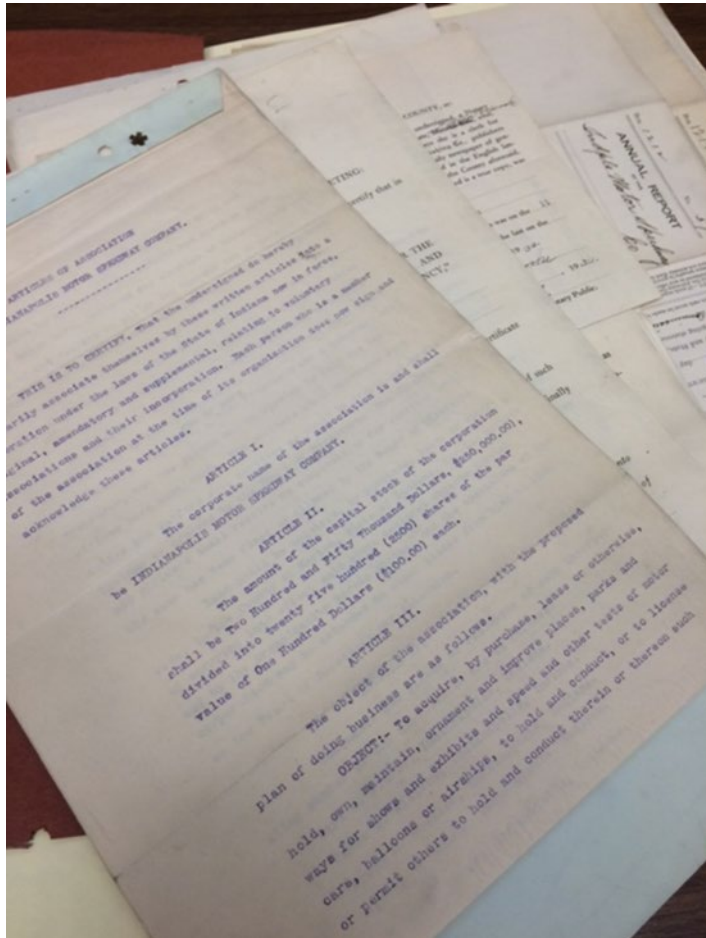 ARTICLES OF ASSOCIATION
INDIANAPOLIS MOTOR SPEEDWAY COMPANY.
THIS IS TO CERTIFY, That the undersigned do hereby
arily associate themselves by these written articles into a
oration under the laws of the State of Indiana now in force,
ginal, amendatory and supplemental, relating to voluntary
ssociations and their incorporation. Each person who is a member
of the association at the time of its organization does now sign and
acknowledge these articles.
ARTICLE I.
The corporate name of the association is and shall
be INDIANAPOLIS MOTOR SPEEDWAY COMPANY.
ARTICLE II.
The amount of the capital stock of the corporation
shall be Two Hundred and Fifty Thousand Dollars, ($250,000.00),
divided into twenty five hundred (2500) shares of the par
value of One Hundred Dollars ($100.00) each.
ARTICLE III.
The object of the association, with the proposed
plan of doing business are as follows.
OBJECT:- To acquire, by purchase, lease or otherwise,
hold, own, maintain, ornament and improve places, parks and
ways for shows and exhibits and speed and other tests of motor
cars, balloons or airships, to hold and conduct, or to license
or permit others to hold and conduct therein or thereon such
ETING:
entify that in
THE
AND
NCY,"
ertificate
of such
inally
of
COUNTY, ss:
undersigned, a Notary
she is a clerk for
publishers
daily newspaper of gen-
in the English lan-
the County aforesaid,
ed is a true copy, was
was on the 11
the last on the
19
tary Public.
No. 1212
ANNUAL REPORT
OF THE
Indpls Motor Speedway
Co